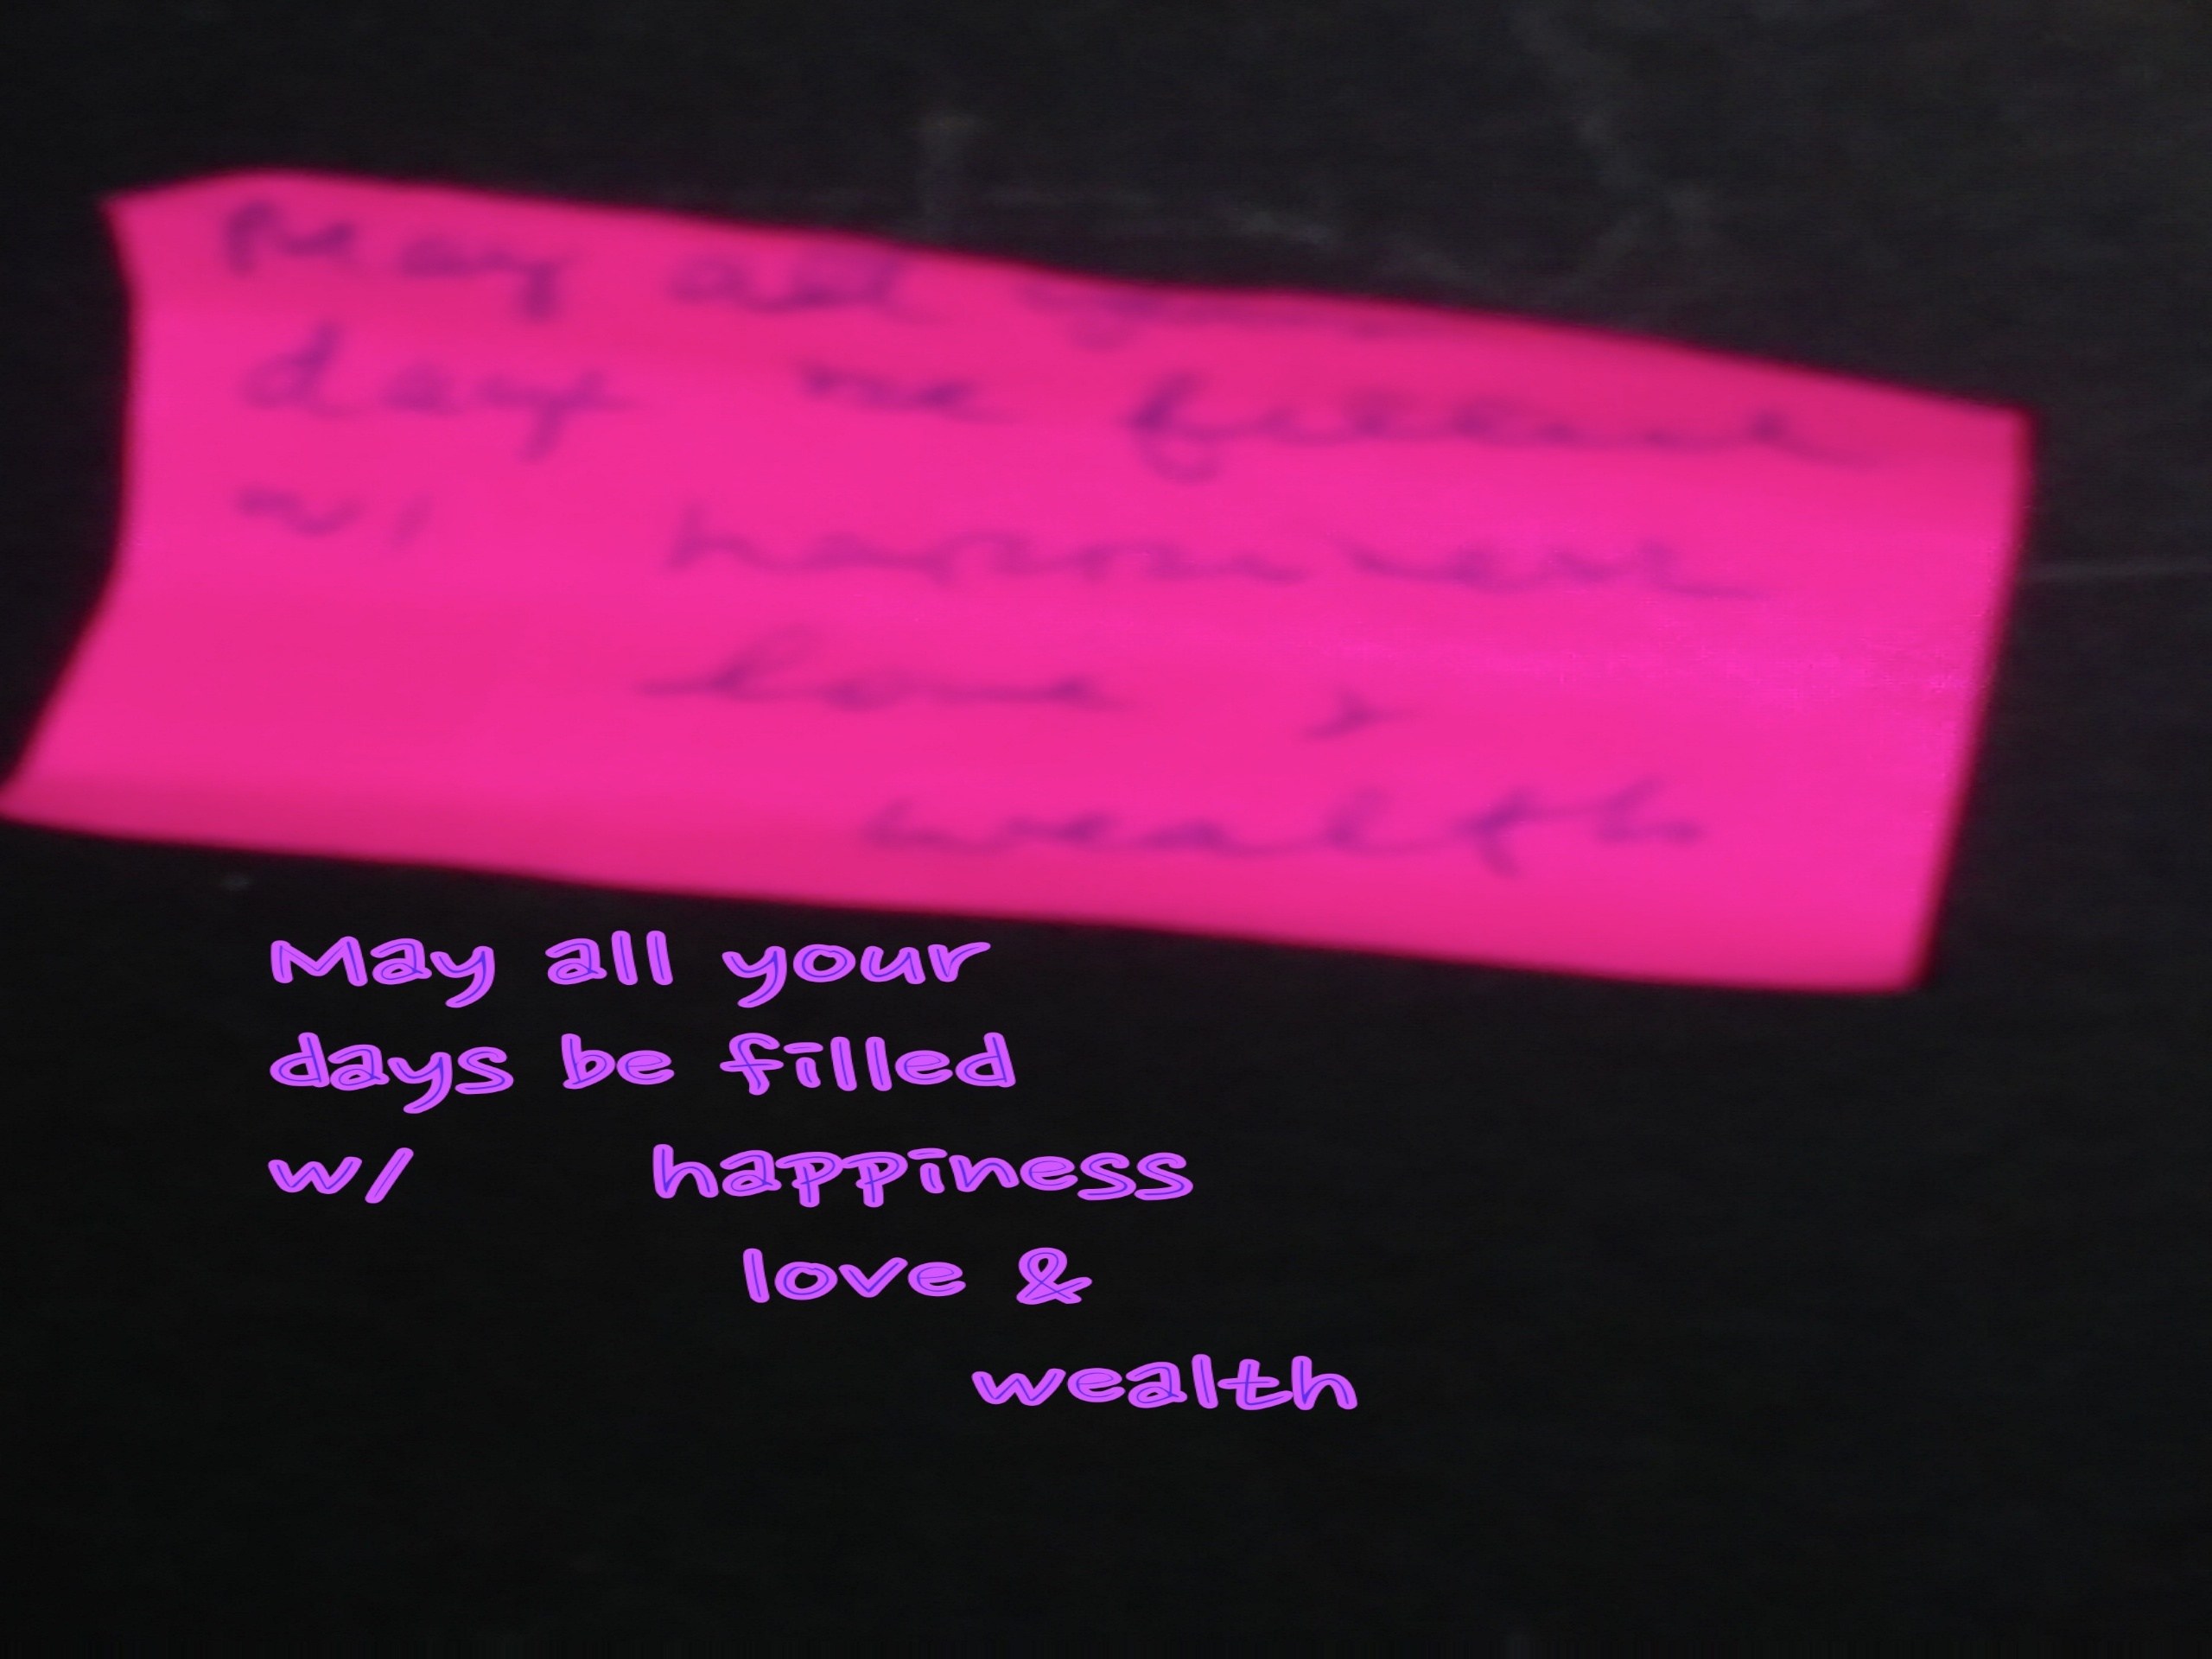 May all your
days be filled
w/ happiness
love &
wealth
May all your
days be filled
w/ happiness
love &
wealth